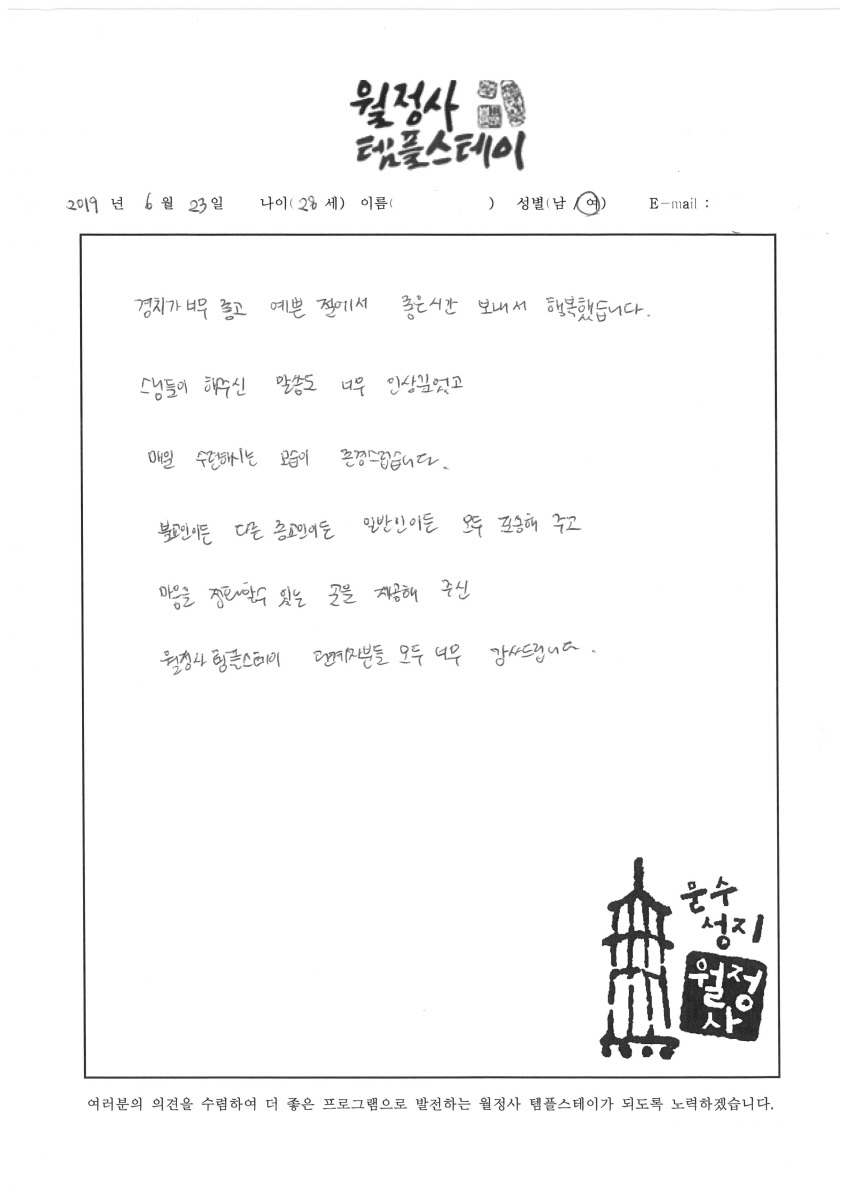 월정사
템플스테이
2019 년 6 월 23 일 나이( 28 세) 이름( ) 성별(남 / 여) E-mail :
경치가 너무 좋고 예쁜 절에서 좋은시간 보내서 행복했습니다.
스님들이 해주신 말씀도 너무 인상깊었고
매일 수련하시는 모습이 존경스럽습니다.
불교인이든 다른 종교인이든 일반인이든 모두 포용해 주고
마음을 정화할수 있는 곳을 제공해 주신
월정사 템플스테이 관계자분들 모두 너무 감사드립니다.
문수
성지
월정
사
여러분의 의견을 수렴하여 더 좋은 프로그램으로 발전하는 월정사 템플스테이가 되도록 노력하겠습니다.